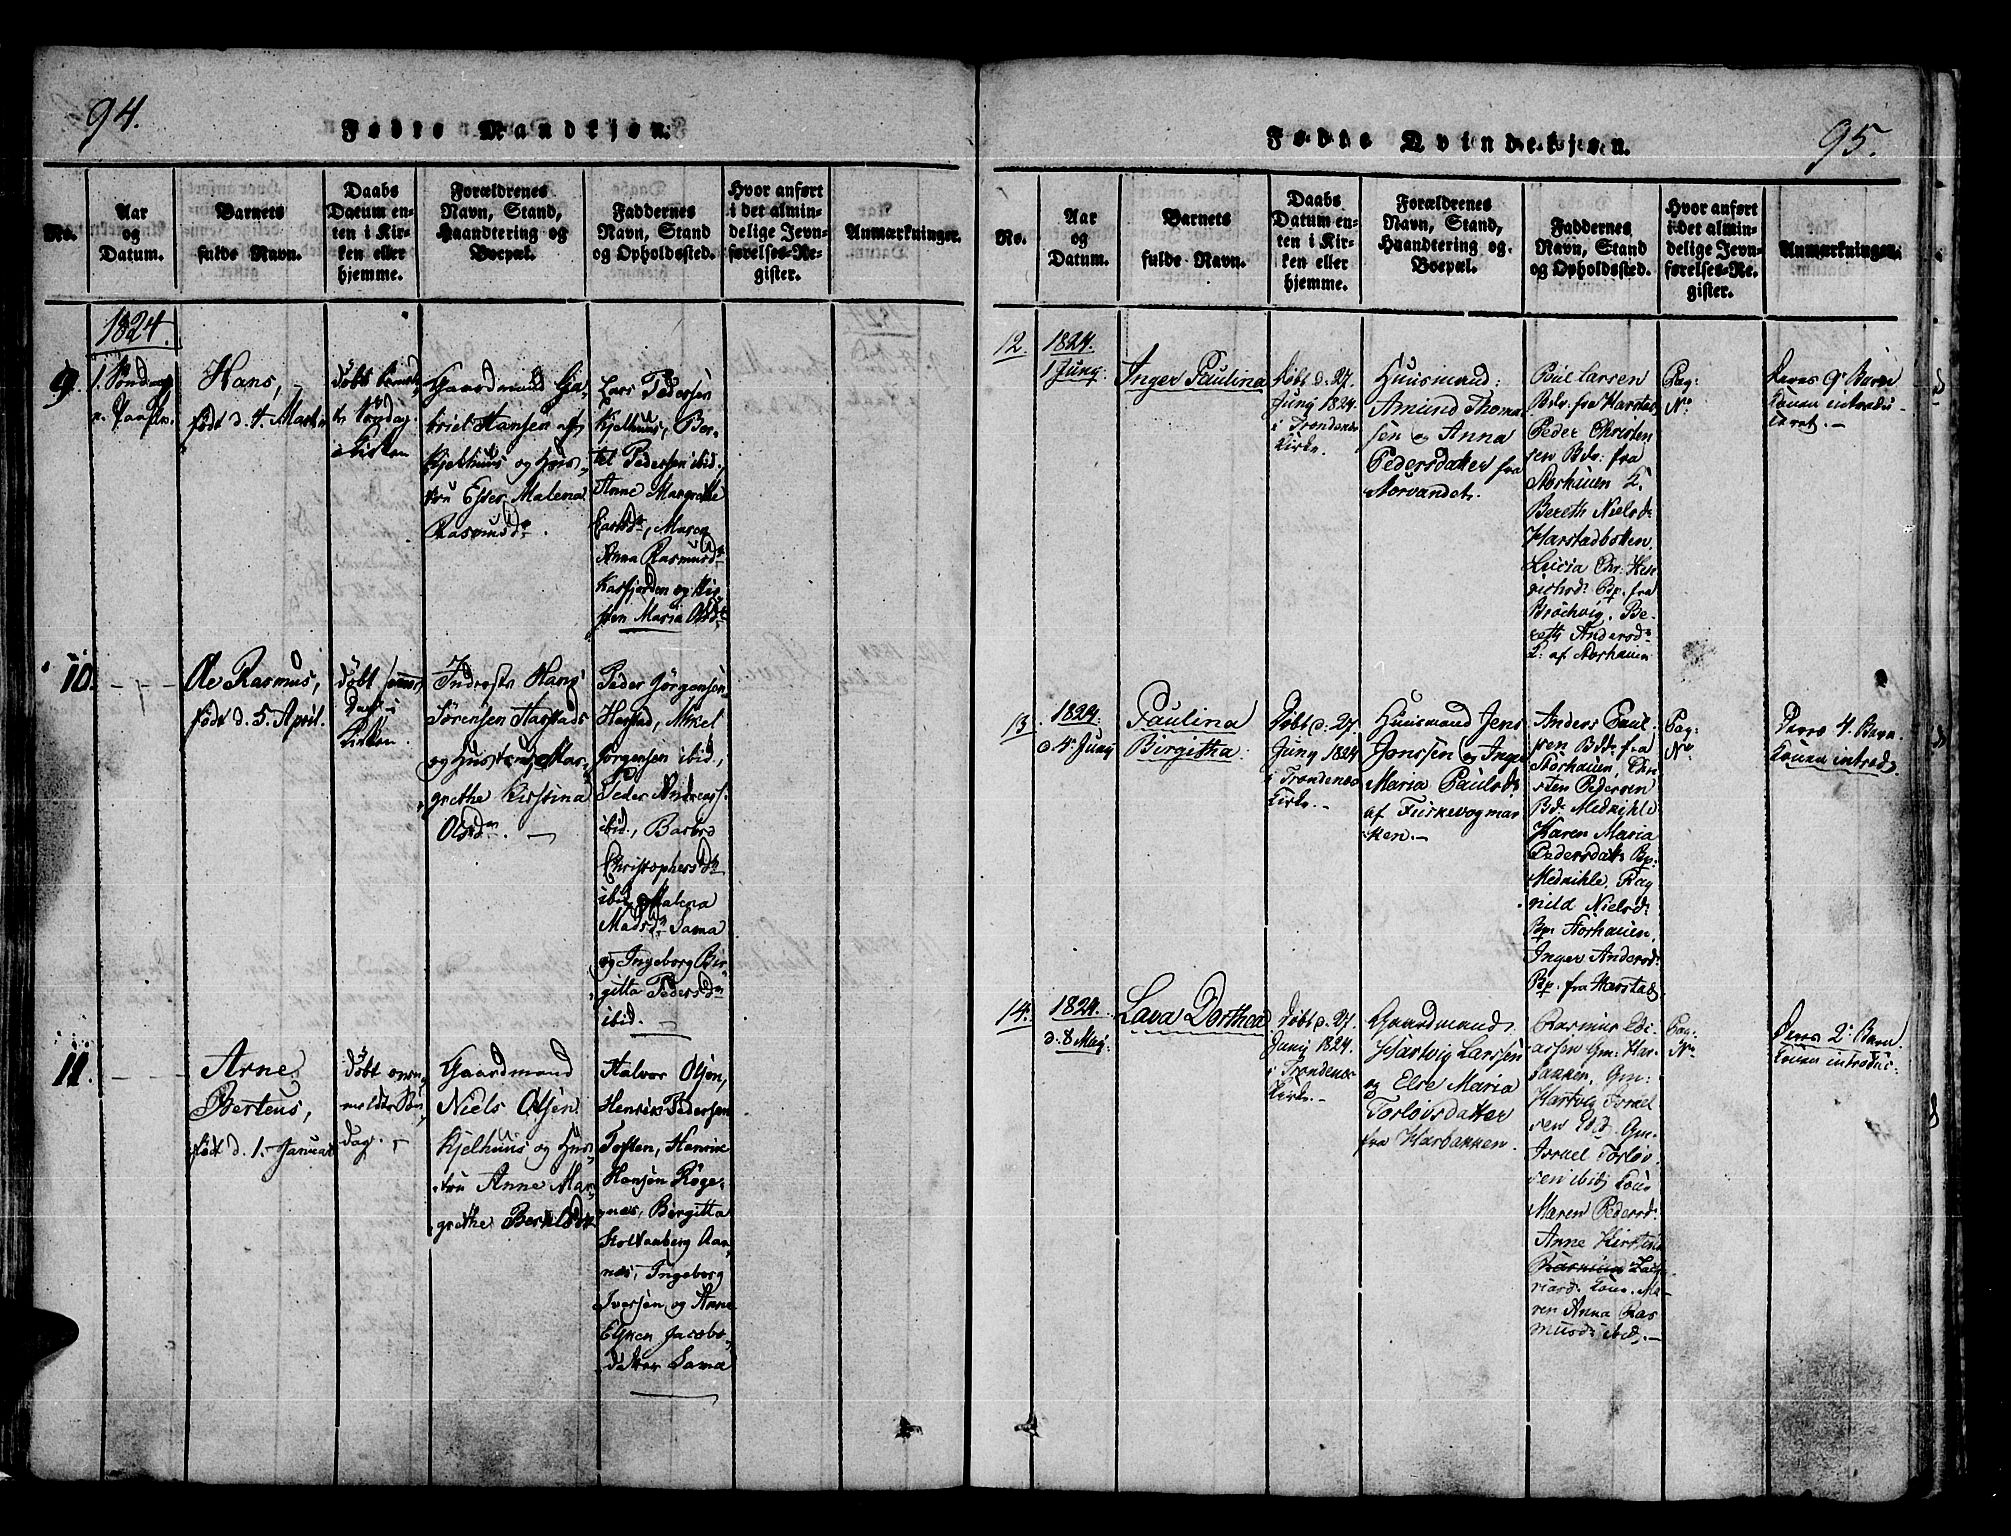 94.
Fødte Mandkjøn.
No.
Aar
og
Datum.
Barnets
fulde Navn.
Daabs
Datum en-
ten i Kir-
ken eller
hjemme.
Forældrenes
Navn, Stand,
Haandtering og
Boepæl.
Faddernes
Navn, Stand
og Opholdssted.
Hvor anført
i det almin-
delige Jevn-
førelses-Re-
gister.
Anmærkninger.
1824.
9.
1. Søndag
p. Paaske.
Hans,
født d. 4. Marts
døbt
Søndag
i Kirken
Gaardmand Ga-
briel Hansen af
Kjelhuus og Hus-
tru Ester Malena
Rasmusd.
Lars Pedersen
Kjelhuus, Ber-
tel Pedersen ibid.
Anne Margrethe
Larsd., Maren
Anna Rasmusd.
Kasfjorden og
Maria Olsd.
10.
Ole Rasmus,
født d. 5. April.
døbt samme
Dag i
Kirken.
Hans
Sørensen Harstad
og Hustru Mar-
grethe Kirstina
Olsd.
Peder Jørgensen
Harstad, Mikel
Jørgensen ibid.,
Peder Andreass.
ibid., Barbro
Christophersd.
ibid, Malena
Madsd. Sama
og Ingeborg Bir-
gitta Pedersd.
ibid.
11.
Arne
Berteus,
født d. 1. Januar
døbt
meldte Søn-
dag.
Gaardmand
Niels Olsen
Kjelhuus og Hus-
tru Anne Mar-
grethe Bertelsd.
Halvor Olsøn,
Henrik Pedersen
Toften, Henrik
Hansøn Røge-
næs, Birgitta
Holtanberg Aar-
næs, Ingeborg
Iversen og Anne
Elsner Jacobs-
datter Sama
95.
Fødte Qvindekjøn.
No.
Aar
og
Datum.
Barnets
fulde Navn.
Daabs
Datum en-
ten i Kir-
ken eller
hjemme.
Forældrenes
Navn, Stand,
Haandtering og
Boepæl.
Faddernes
Navn, Stand
og Opholdssted.
Hvor anført
i det almin-
delige Jevn-
førelses-Re-
gister.
Anmærkninger.
12.
1824.
1 Juny.
Inger Paulina
Døbt d. 27.
Juny 1824.
i Trondenæs
Kirke.
Huusmand:
Amund Thoma-
sen og Anna
Pedersdatter fra
Norvandet.
Poul Larsen
Bdr. fra Harstad,
Peder Christen
sen Bdr: fra
Storhauen K.
Bereth Nielsd:
Harstadbotten,
Lucia Chr: Hen-
richsd: Bp. fra
Brochvig. Be-
reth Andersd:
P: af Storhauen
Pag:
No.
Deres 9de Barn
Konen introdu-
ceret.
13.
1824.
d. 4. Juny
Paulina
Birgitha.
Døbt d. 27.
Juny 1824
i Trondenæs
Kirke.
Huusmand Jens
Jonssen og Inger
Maria Paulsd:
af Fuskevogmar-
ken.
Anders Paul-
sen Bd: fra
Storhauen, Chr-
sten Pedersen
Bd: Medkihle
Karen Maria
Pedersdatt: Bp:
Medkihle, Rag
nild Nielsd:
Bp: Storhauen,
Inger Andersd:
Bp. fra Harstad.
Pag:
No.
Deres 4. Barn.
Konen introd.
14.
1824.
d. 8 May.
Lava Dorthea
Døbt d. 27.
Juny 1824.
i Trondenæs
Kirke.
Gaardmand
Hartvig Larssen
og Else Maria
Torlovsdatter
fra Harbakken.
Rasmus
Gm: Har-
bakken, Gm:
Hartvig Israel
sen Gm:
Israel Torlov-
sen ibid Kone
Maren Pedersd:
Anne Kirstina
Zach-
riasd: Kone. Ma-
ren Anna Ras
musd: ibid.
Pag:
No.
Deres 2. Barn
Konen introduc: